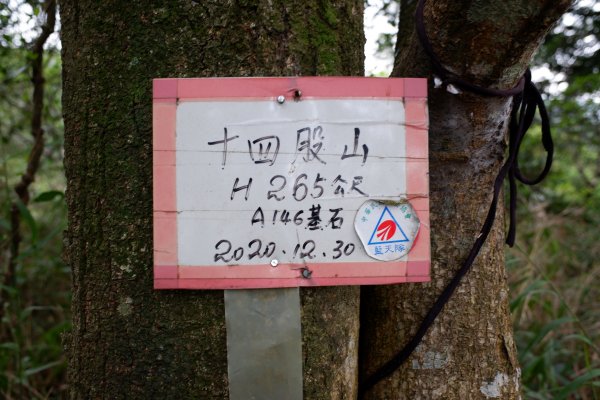 十四股山
H 265公尺
A146基石
2020.12.30
藍天隊